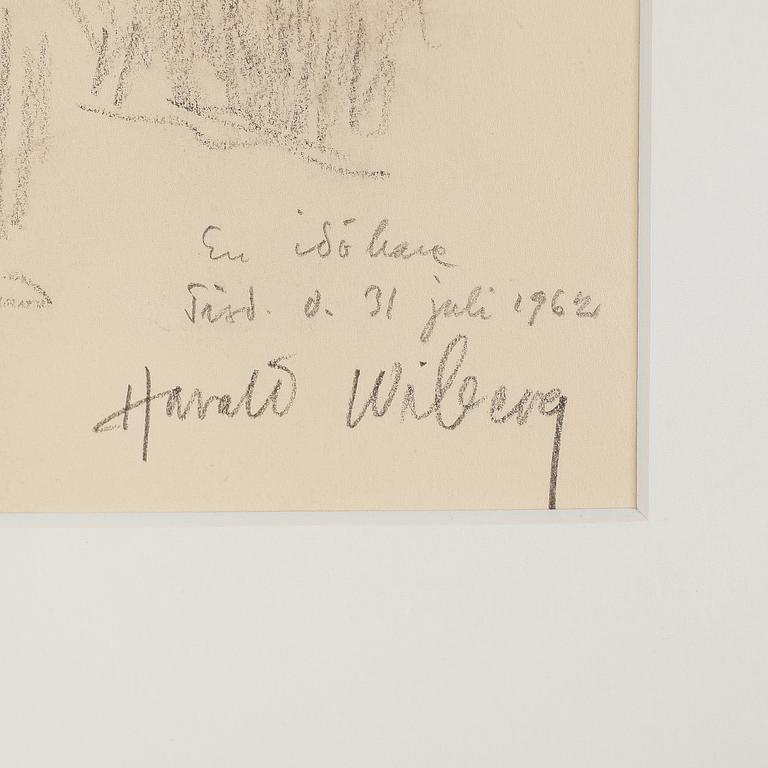 En idö hare
Tisd. d. 31 juli 1962
Harald Wiberg